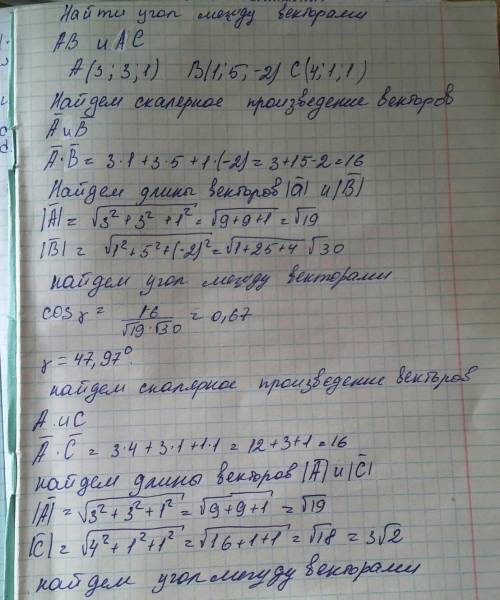 Найти угол между векторами
AB и AC
A(3; 3; 1) B(1; 5; -2) C(4; 1; 1)
Найдем скалерное произведение векторов
A̅ и B̅
A̅ · B̅ = 3·1 + 3·5 + 1·(-2) = 3+15-2=16
Найдем длины векторов |a̅| и |B̅|
|A̅| = √(3² + 3² + 1²) = √(9+9+1) = √19
|B̅| = √(1² + 5² + (-2)²) = √(1+25+4) √30
найдем угол между векторами
cos γ = 16/(√19·√30) = 0,67
γ = 47,97°.
найдем скалярное произведение векторов
A и C
A̅ · C̅ = 3·4 + 3·1 + 1·1 = 12+3+1=16
найдем длины векторов |A̅| и |C̅|
|A̅| = √(3² + 3² + 1²) = √(9+9+1) = √19
|C̅| = √(4² + 1² + 1²) = √(16+1+1) = √18 = 3√2
найдем угол между векторами